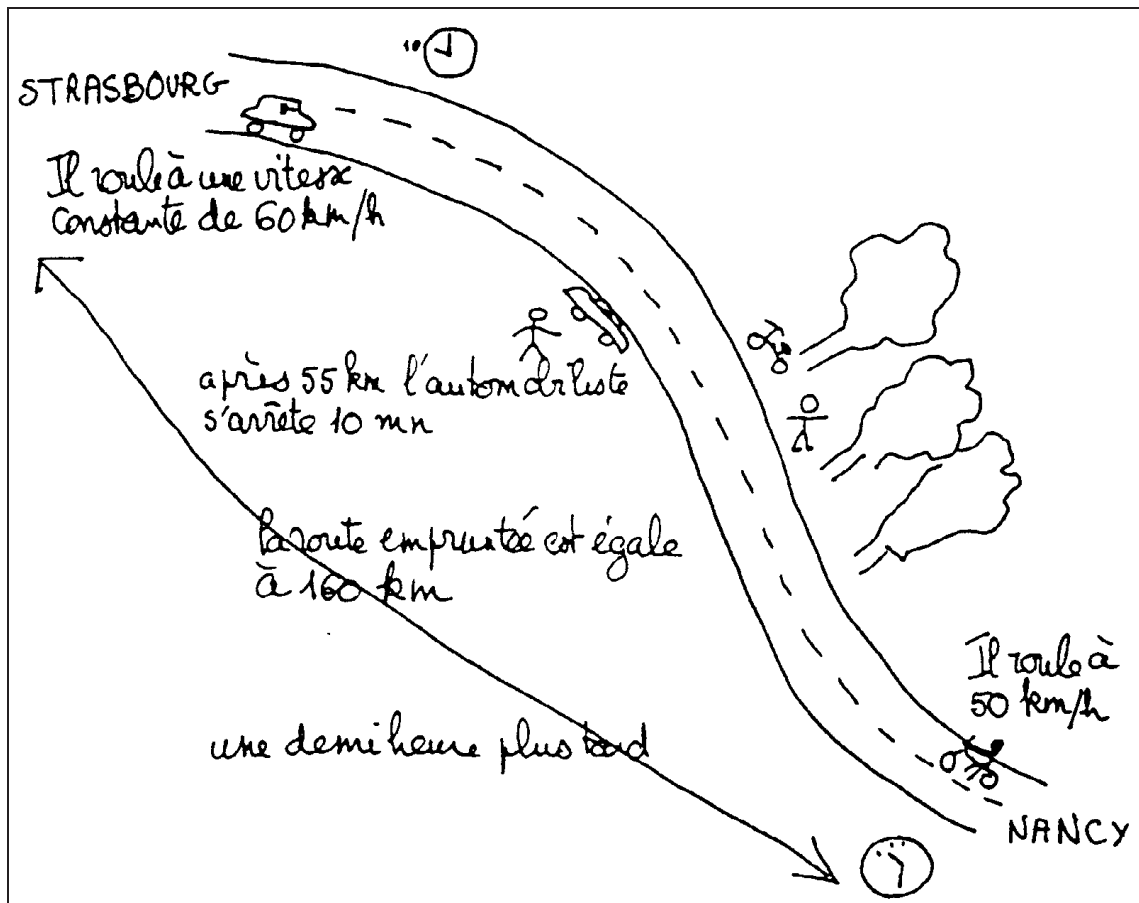 STRASBOURG
Il roule à une vitesse
constante de 60 km/h
après 55 km l'automobiliste
s'arrête 10 mn
la route empruntée est égale
à 160 km
une demi heure plus tard
Il roule à
50 km/h
NANCY